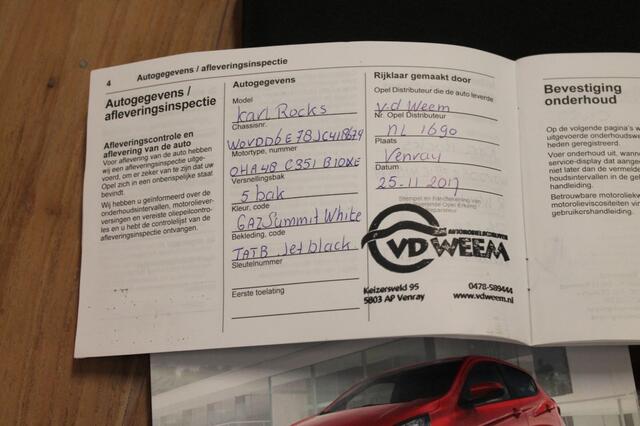 4
Autogegevens / afleveringsinspectie
Autogegevens /
afleveringsinspectie
Afleveringscontrole en
aflevering van de auto
Voor aflevering van de auto hebben
wij een afleveringsinspectie uitge-
voerd, om er zeker van te zijn dat uw
Opel zich in een onberispelijke staat
bevindt.
Wij hebben u geïnformeerd over de
onderhoudsintervallen, motoroliever-
versingen en vereiste oliepeilcontro-
les en u hebt de controlelijst van de
afleveringsinspectie ontvangen.
Autogegevens
Model
Karl Rocks
Chassisnr.
Motortype, nummer
Versnellingsbak
5 bak
Kleur, code
GAZ Summit White
Bekleding, code
TATB Jet black
Sleutelnummer
Eerste toelating
Rijklaar gemaakt door
Opel Distributeur die de auto leverde
v.d Weem
Nr. Opel Distributeur
NL 1690
Plaats
Venray
Datum
25-11-2017
AUTOMOBIELBEDRIJVEN
VD WEEM
Keizersveld 95
5803 AP Venray
0478-589444
www.vdweem.nl
Bevestiging
onderhoud
Op de volgende pagina's w
uitgevoerde onderhoudsw
heden geregistreerd.
Voer onderhoud uit, wann
service-display dat aange
niet later dan de vermelde
houdsintervallen in de geb
handleiding.
Betrouwbare motoroliekw
motorolieviscositeiten vin
gebruikershandleiding.